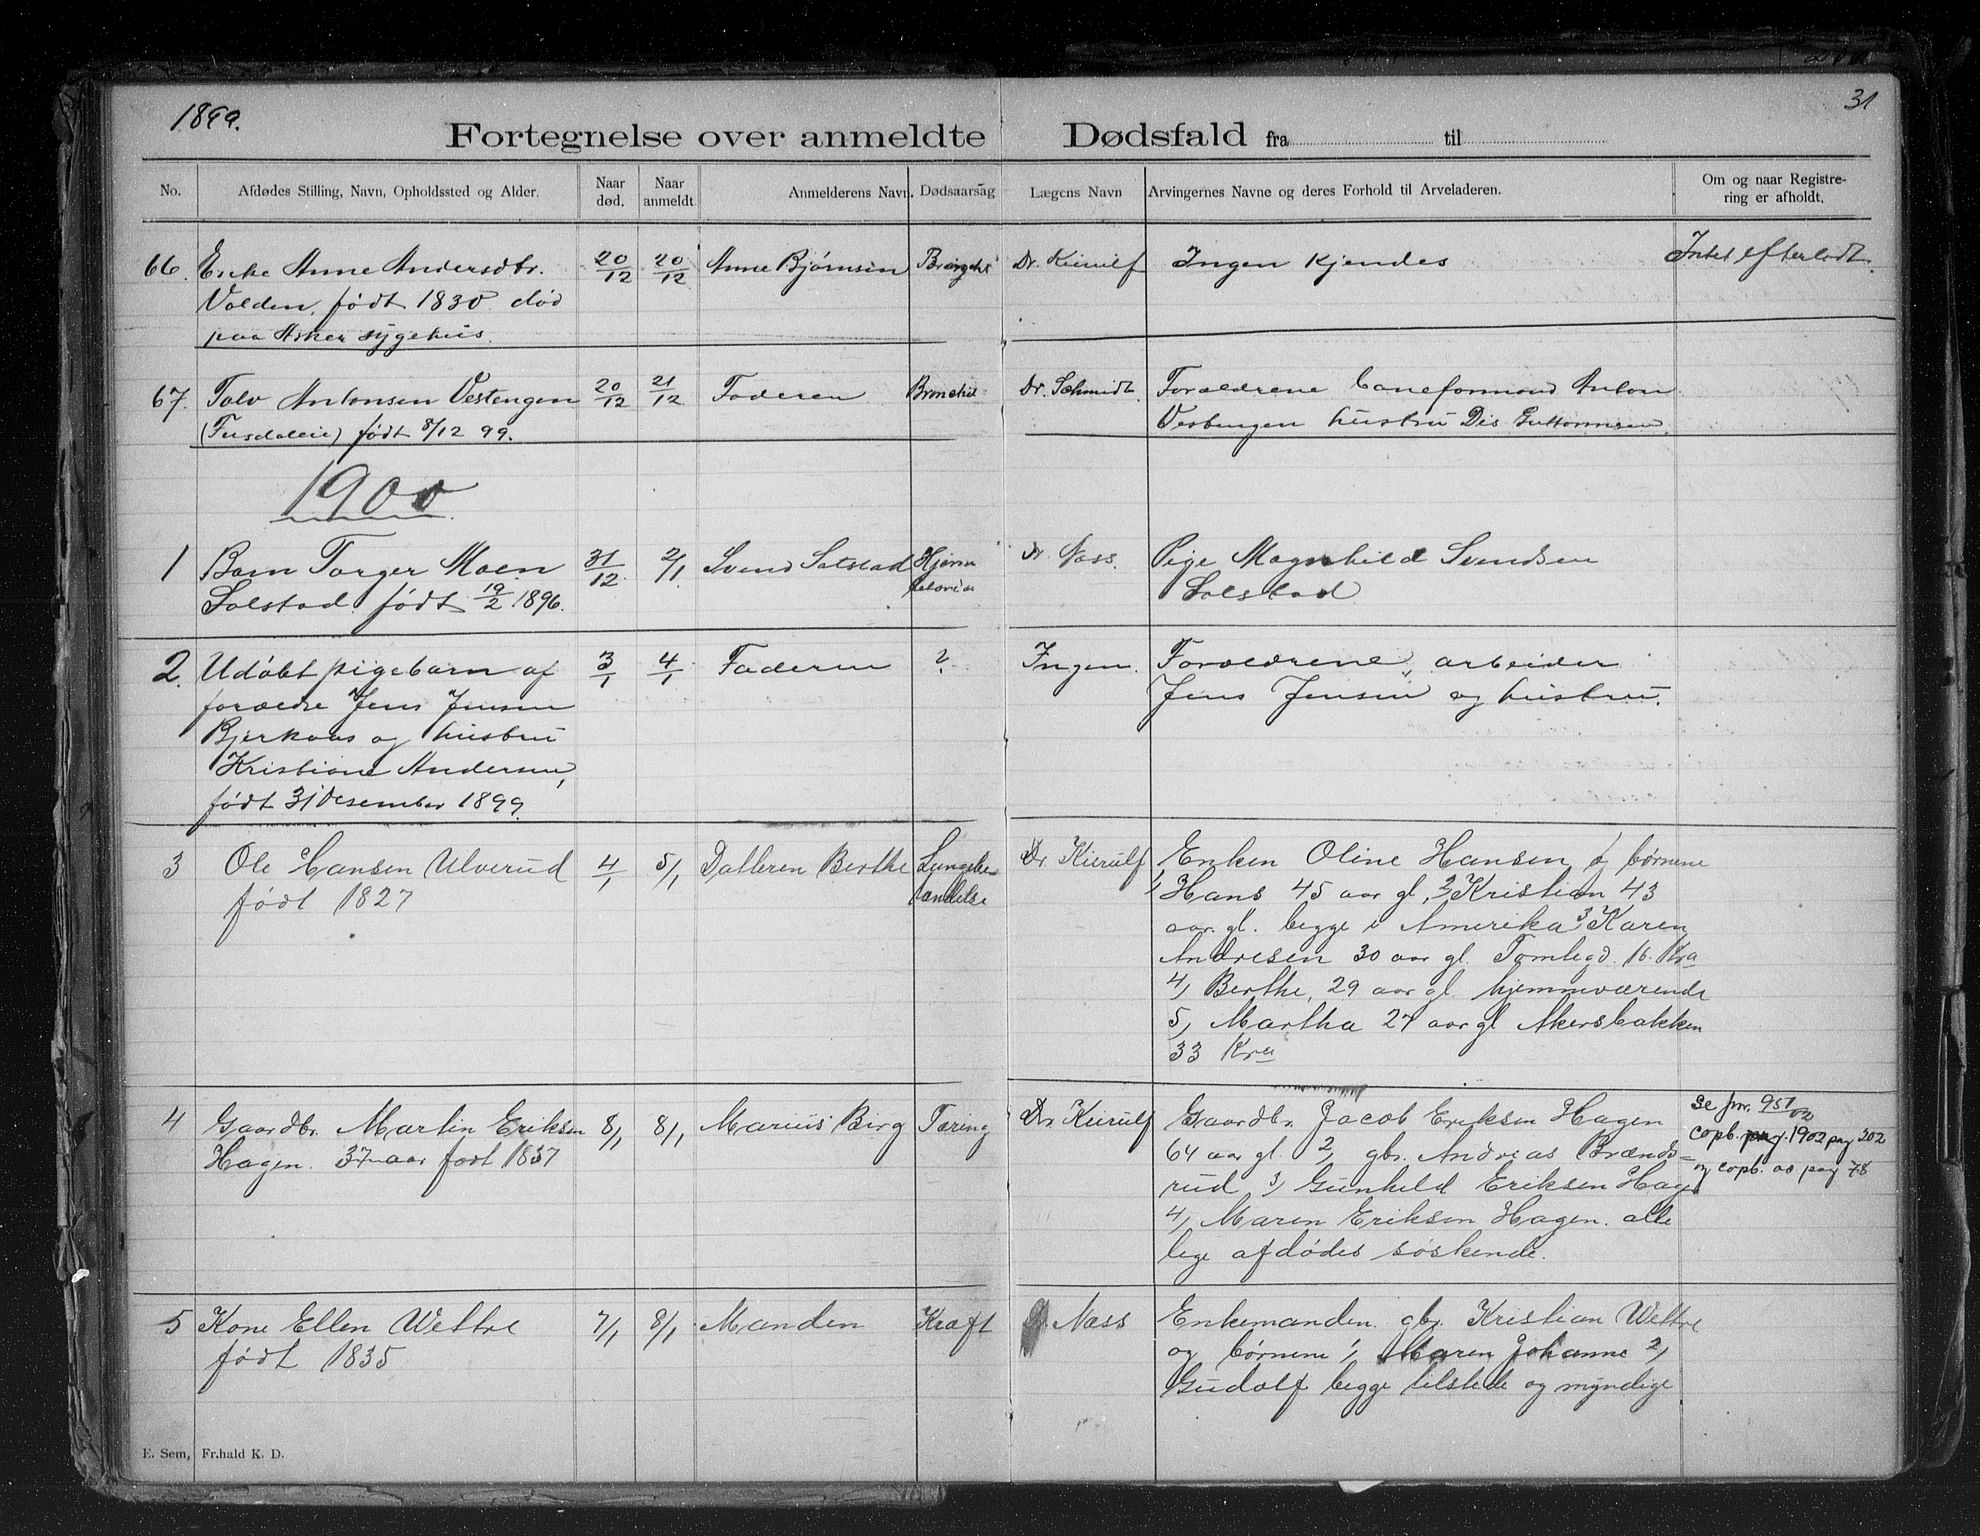 1899.
31
Fortegnelse over anmeldte Dødsfald fra til
No.
Afdødes Stilling, Navn, Opholdssted og Alder.
Naar død.
Naar anmeldt.
Anmelderens Navn.
Dødsaarsag
Lægens Navn
Arvingernes Navne og deres Forhold til Arveladeren.
Om og naar Registre-
ring er afholdt.
66. Enke Anne Andersdtr. 20/12 20/12 Anne Bjørnsen Dr. Kierulf Ingen Kjendes Intet efterladt.
Volden, født 1830 død
paa Asker sygehus.
67. Anbonsen Vestengen 20/12 21/12 Faderen Bronchit Dr. Schmidt. Foræeldrene baneformand Anton
født 8/12 99. Vestengen hustru Dis Guttormsen.
1900
1 Barn Torger Moen 31/12. 2/1. Svend Solstad Hjerne Dr. Næss. Pige Magnhild Svendsen
Solstad. født 19/2 1896. Solstad.
2. Udøbt pigebarn af 3/1 4/1 Faderen ? Ingen. Forældrene, arbeider
forældre Jens Jensen Jens Jensen og hustru.
Bjerkaas og hustru
Kristiane Andersen,
født 31 Desember 1899.
3 Ole Hansen Ulverud 4/1 5/1 Datteren Berthe Lungebe- Dr. Kierulf Enken Oline Hansen og børnene
født 1827 tændelse 1, Hans 45 aar gl, 2, Kristian 43
aar gl. begge i Amerika 3, Karen
Andresen 30 aar gl. Tomtegd. 16. Kra
4, Berthe, 29 aar gl. hjemmeværende
5, Martha 27 aar gl Akersbakken
33 Kra
4 Gaardbr. Martin Eriksen 8/1 8/1 Marius Birg Tæring Dr. Kierulf Gaardbr. Jacob Eriksen Hagen se jnr. 951/02
Hagen. 37 aar født 1837 64 aar gl. 2, gbr. Andreas Brænds- copb. pag. 1902 pag 202
rud 3, Gunhild Eriksen Hagen og copb. 00 pag 78
4, Maren Eriksen Hagen. alle
lige afdødes søskende.
5 Kone Ellen Wettre 7/1 8/1 Manden Kræft Dr. Næss Enkemanden gbr. Kristian Wettre
født 1835 og børnene 1, Maren Johanne 2,
Gudolf begge tilstede og myndige
E. Sem, Fr.hald K. D.